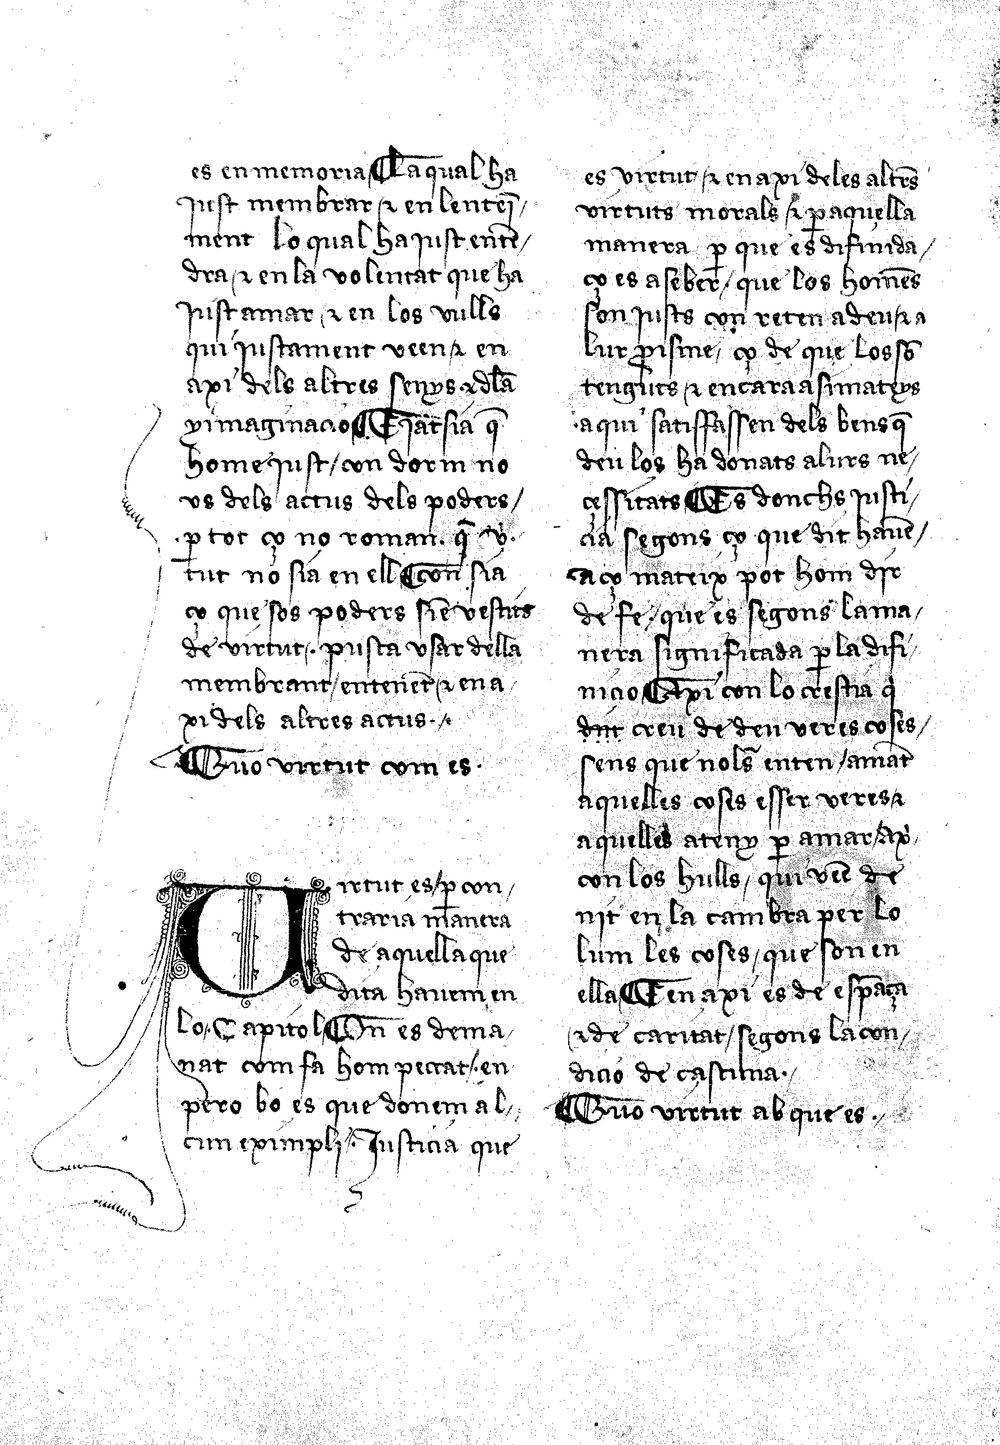 es en memoria ¶ La qual ha
just membrar ⁊ en lenteni̅/
ment lo qual ha just ente̅/
dra ⁊ en la volentat que ha
just amar ⁊ en los vulls
qui justament veen ⁊ en
axi dels altres senys ⁊ dla
ymaginacio ¶ E jatsia q̅
home just / con dorm no
vs dels actus dels poders /
ꝑ tot ço no roman q̅ v̅.
tut no sia en ell ¶ con sia
ço que sos poders sie̅ vestits
de virtut . pusca vsar della
membrant / entene̅t ⁊ en a /
xi dels altres actus .
¶ Quo virtut com es .
Uirtut es / ꝑ con /
traria manera
de aquella que
dita hauem en
lo . Capitol ¶ On es dema /
nat com fa hom peccat / en
pero bo es que donem al /
cun eximpli . Justicia que
es virtut ⁊ en axi de les altr̅s
virtuts morals ⁊ ꝑ aquella
manera ꝑ que es difinida /
ço es a seber̅ / que los home̅s
son justs con reten a deu ⁊ a
lur ꝓisme / ço de que los so̅
tenguts ⁊ encara a si mateys
aqui satisffassen dels bens q̅
deu los ha donats a lurs ne /
cessitats ¶ Es donchs justi /
cia segons ço que dit haue̅ /
aço mateix pot hom dir
de fe / que es segons la ma /
nera significada ꝑ la difi /
nicio ¶ Axi con lo crestia q̅
diu creu de deu veres coses /
sens que nols̅ enten / amant
aquelles coses esser veres ⁊
aquelles ateny ꝑ amar / Ax̅ .
con los hulls / qui vee̅ de
nit en la cambra per lo
lum les coses / que son en
ella ¶ E en axi es de espa̅ça
⁊ de caritat / segons la con /
dicio de castuna .
¶ Quo virtut ab que es .